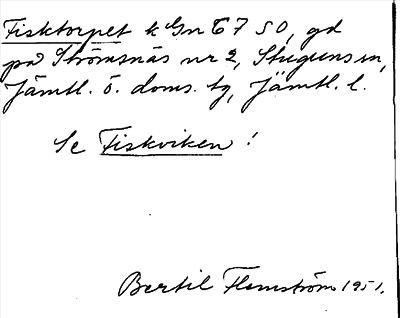 Fisktorpet k Gn 67 SO, gd
på Strömsnäs nr 2, Stuguns sn,
Jämtl. ö. doms. tg, Jämtl. l.
Se Fiskviken!
Bertil Flemström 1951.